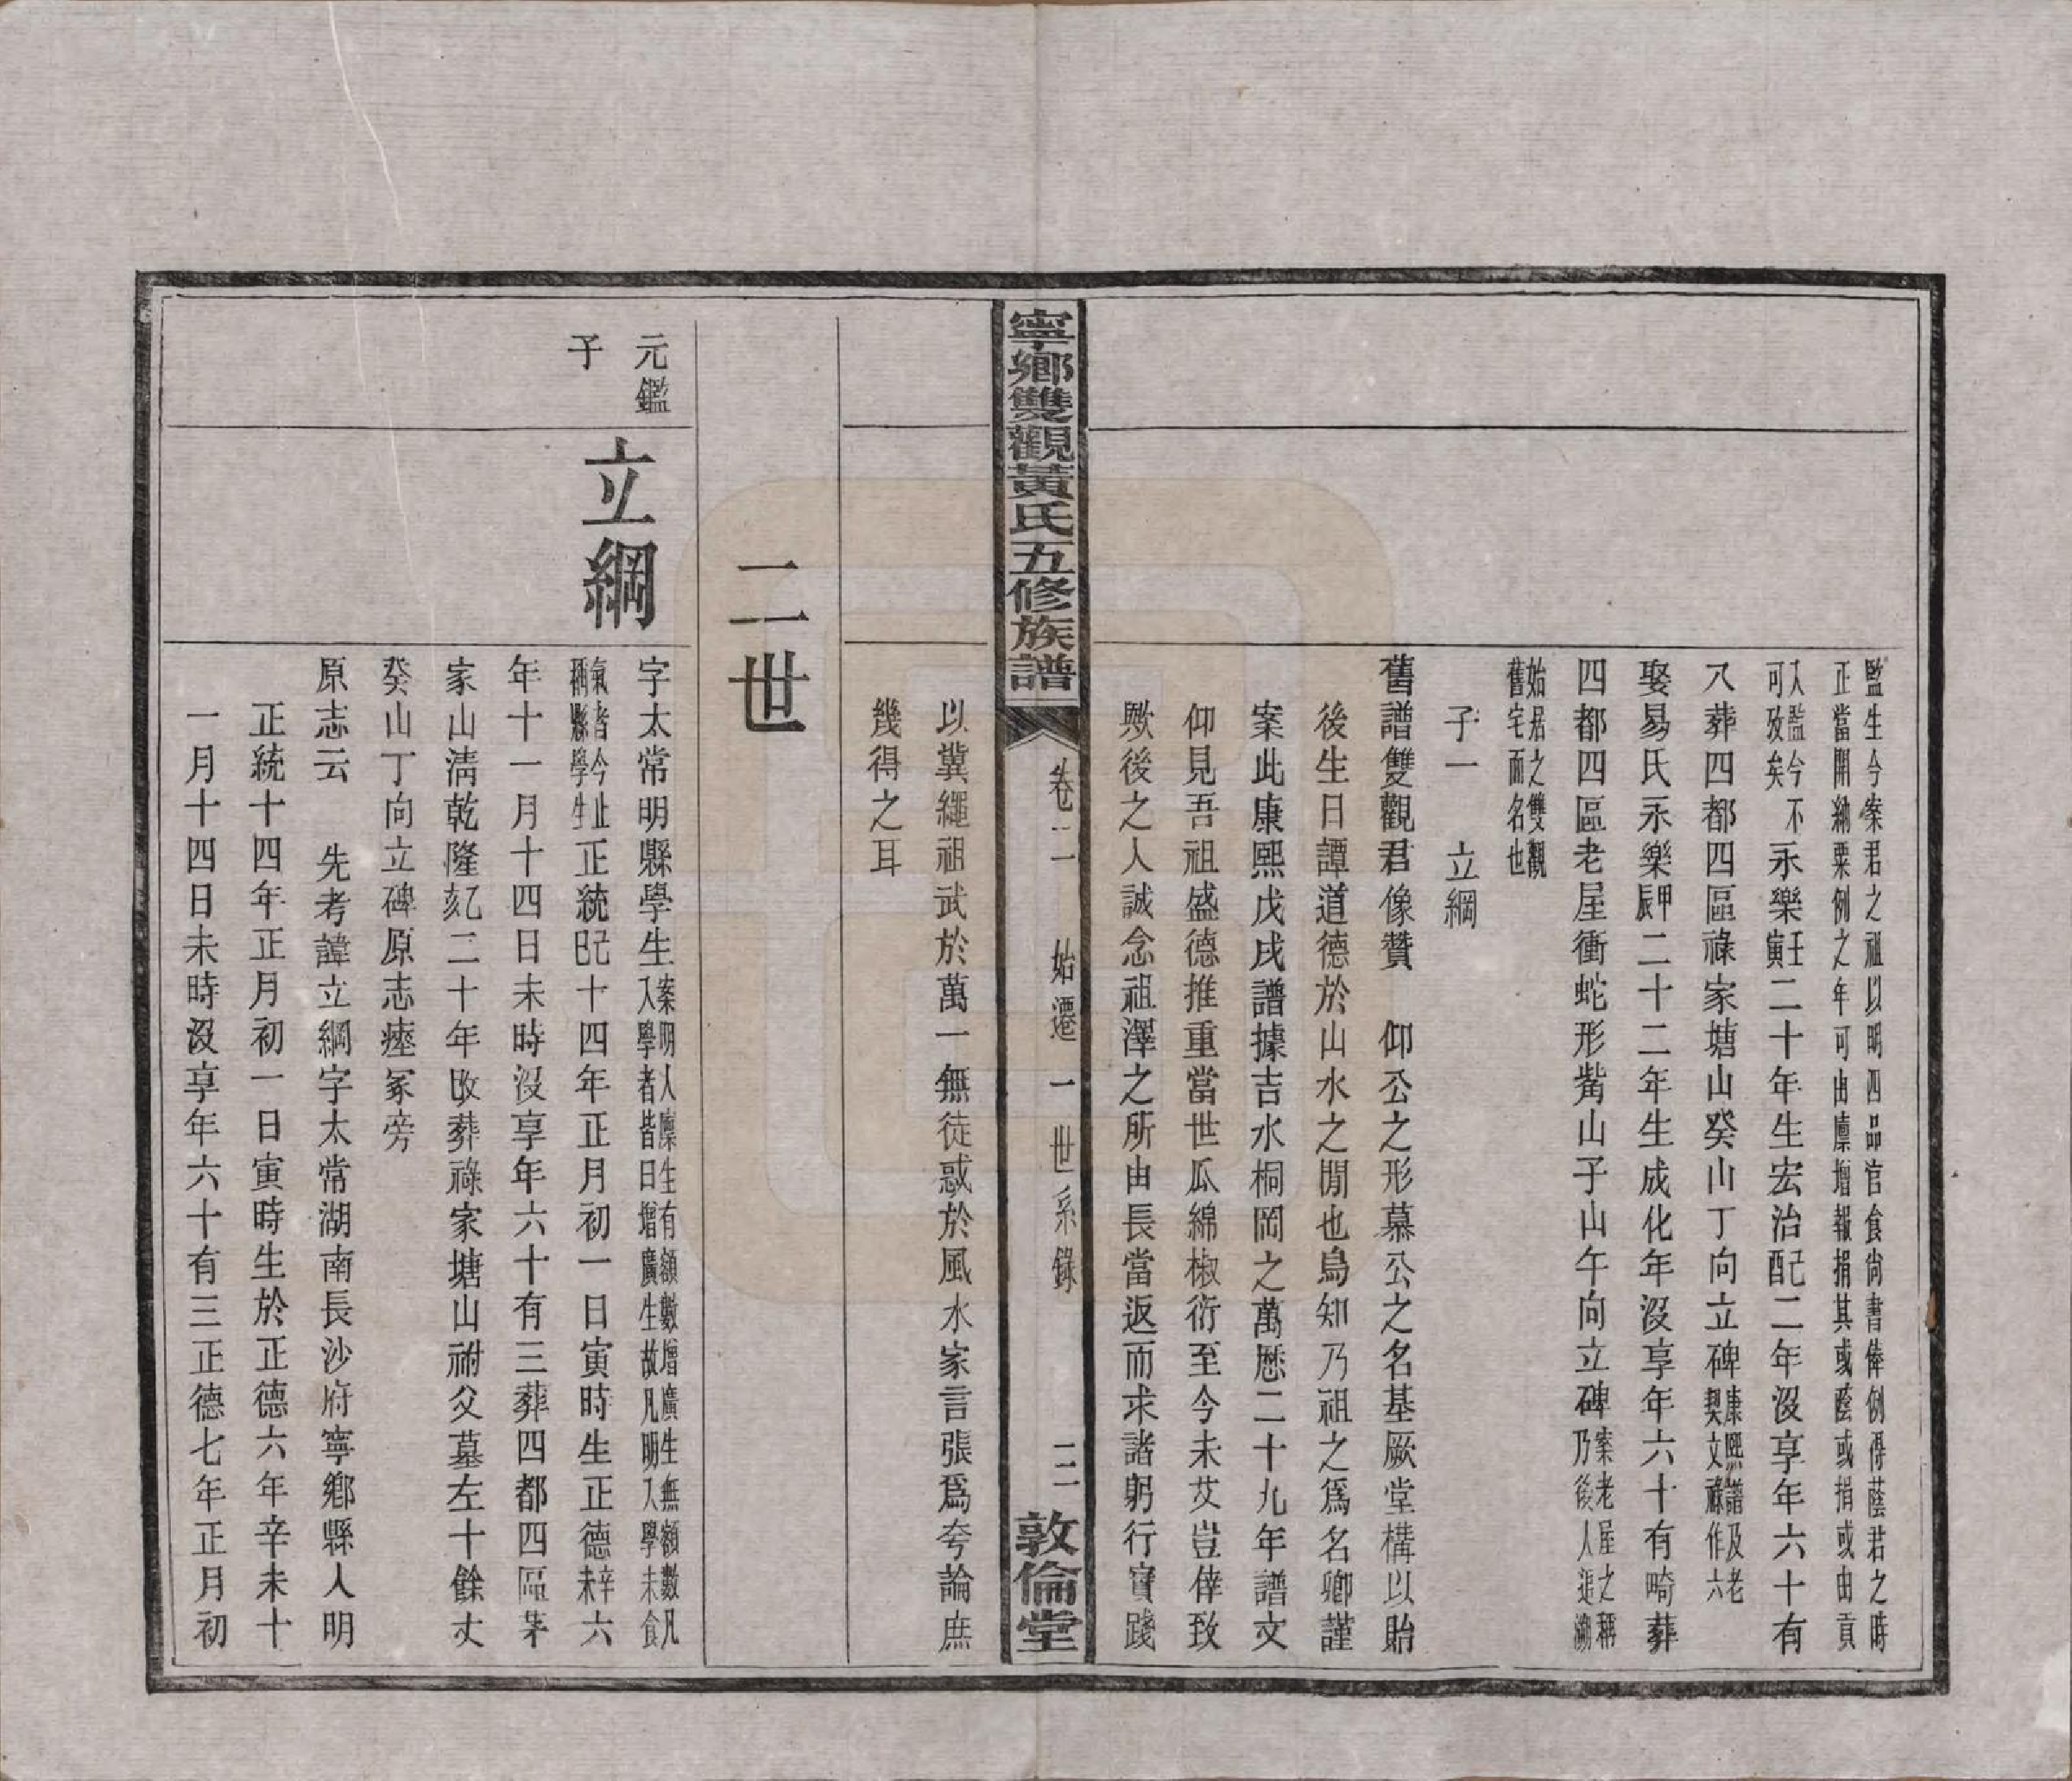 監生今案君之祖以明四品官食尚書俸例得蔭君之時
正當開納粟例之年可由廪增報捐其或蔭或捐或由貢
入監今不
可攷矣
永樂壬寅二十年生宏治己酉二年沒享年六十有
八葬四都四區祿家塘山癸山丁向立碑康熙譜及老
契文祿作六
娶易氏永樂甲辰二十二年生成化年沒享年六十有畸葬
四都四區老屋衝蛇形觜山子山午向立碑案老屋之稱
乃後人追溯
始居之雙觀
舊宅而名也
子一 立綱
舊譜雙觀君像贊 仰公之形慕公之名基厥堂構以貽
後生日譚道德於山水之閒也烏知乃祖之爲名卿謹
案此康熙戊戌譜據吉水桐岡之萬厯二十九年譜文
仰見吾祖盛德推重當世瓜綿椒衍至今未艾豈倖致
歟後之人誠念祖澤之所由長當返而求諸躬行實踐
寧鄉雙觀黃氏五修族譜
卷二 始遷一世系錄 二
敦倫堂
以冀繩祖武於萬一無徒惑於風水家言張爲夸論庶
幾得之耳
二世
元鑑
子
立綱
字太常明縣學生案明人廪生有額數增廣生無額數凡
入學者皆曰增廣生故凡明入學未食
氣者今止
稱縣學生
正統己巳十四年正月初一日寅時生正德辛未六
年十一月十四日未時沒享年六十有三葬四都四區茅
家山淸乾隆乙亥二十年改葬祿家塘山祔父墓左十餘丈
癸山丁向立碑原志瘞冢旁
原志云 先考諱立綱字太常湖南長沙府寧鄉縣人明
正統十四年正月初一日寅時生於正德六年辛未十
一月十四日未時沒享年六十有三正德七年正月初